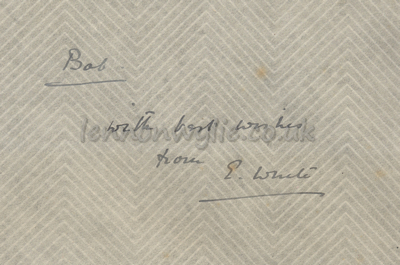 Bob.
with best wishes
lennonwylie.co.uk
from
E. White